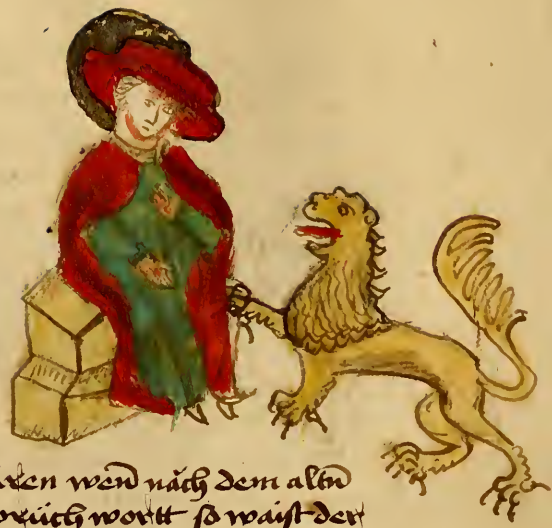 ren wen̄ näch dem altn̄
prüch wortt so waist der